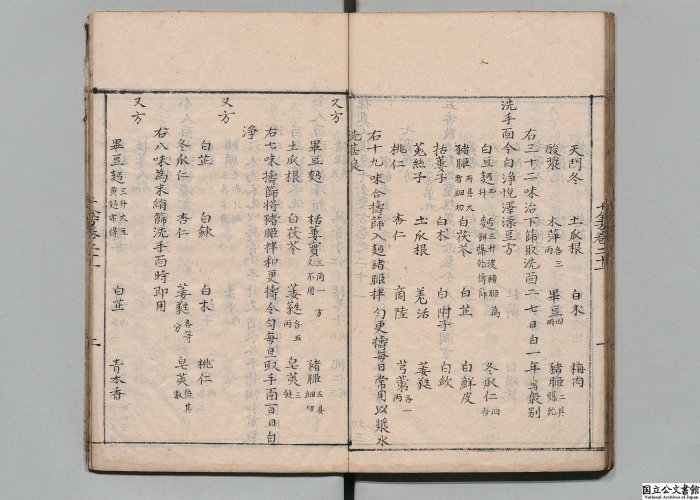 天門冬 土瓜根 白朮 梅肉
酸漿 水萍各三兩 畢豆四兩 豬胰二具曝乾
右三十二味治下篩取洗面二七日白一年与衆別
洗手面令白净悅澤澡豆方
白豆麪一升 冬瓜仁四合
豬胰兩具大者細切 白茯苓 白芷 白鮮皮
栝蔞子 白朮 白附子 白歛
菟絲子 土瓜根 羌活 萎蕤
桃仁 杏仁 商陸 芎藭各一兩
右十九味合擣篩入麪豬胰拌勻更擣每日常用以漿水
洗甚良
又方
畢豆麪 栝蔞實三兩一方又不用 豬胰五具細切
土瓜根 白茯苓 萎蕤各五兩 皂莢三挺
右七味擣篩將豬胰拌和更擣令勻每旦取手面百日白
淨
又方
白芷 白歛 白朮 桃仁
冬瓜仁 杏仁 萎蕤各等分 皂莢倍其數
右八味為末絹篩洗手面時即用
又方
畢豆麪三升大豆黄麪亦得 白芷 青木香
国立公文書館
National Archives of Japan